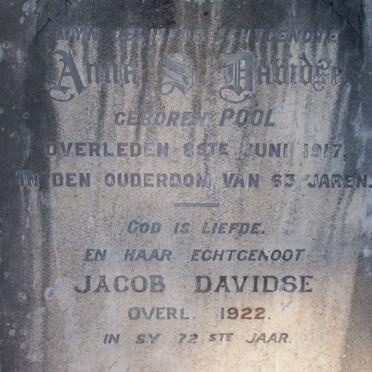 MYN GELIEFDE ECHTGENOTE
Anna S. Davidse
GEBOREN POOL
OVERLEDEN 8STE JUNI 1917,
IN DEN OUDERDOM VAN 63 JAREN.
GOD IS LIEFDE.
EN HAAR ECHTGENOOT
JACOB DAVIDSE
OVERL. 1922.
IN SY 72 STE JAAR.